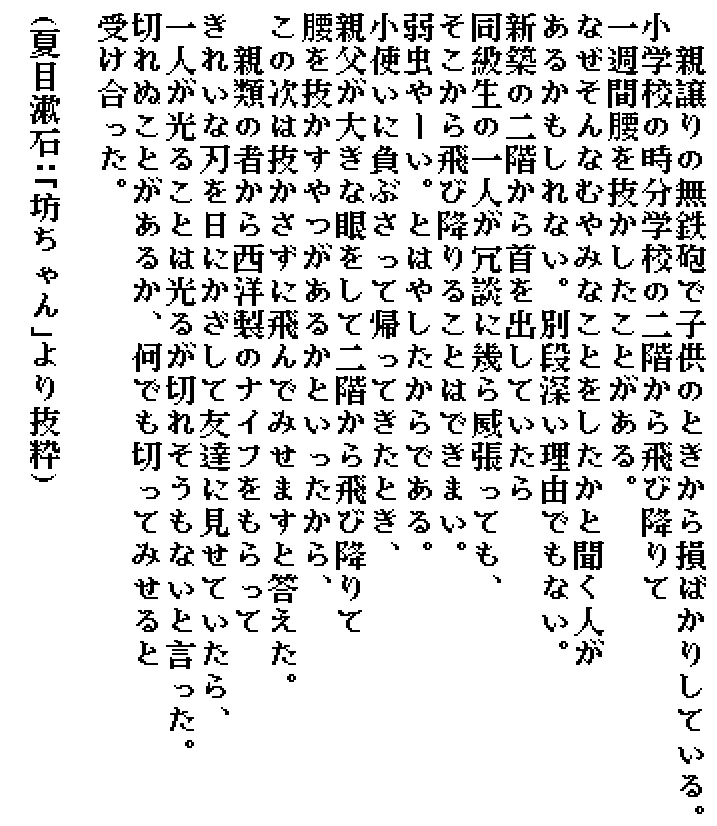 親譲りの無鉄砲で子供のときから損ばかりしている。
小学校の時分学校の二階から飛び降りて
一週間腰を抜かしたことがある。
なぜそんなむやみなことをしたかと聞く人が
あるかもしれない。別段深い理由でもない。
新築の二階から首を出していたら
同級生の一人が冗談に幾ら威張っても、
そこから飛び降りることはできまい。
弱虫やーい。とはやしたからである。
小使いに負ぶさって帰ってきたとき、
親父が大きな眼をして二階から飛び降りて
腰を抜かすやつがあるかといったから、
この次は抜かさずに飛んでみせますと答えた。
　親類の者から西洋製のナイフをもらって
きれいな刃を日にかざして友達に見せていたら、
一人が光ることは光るが切れそうもないと言った。
切れぬことがあるか、何でも切ってみせると
受け合った。
(夏目漱石:「坊ちゃん」より抜粋)